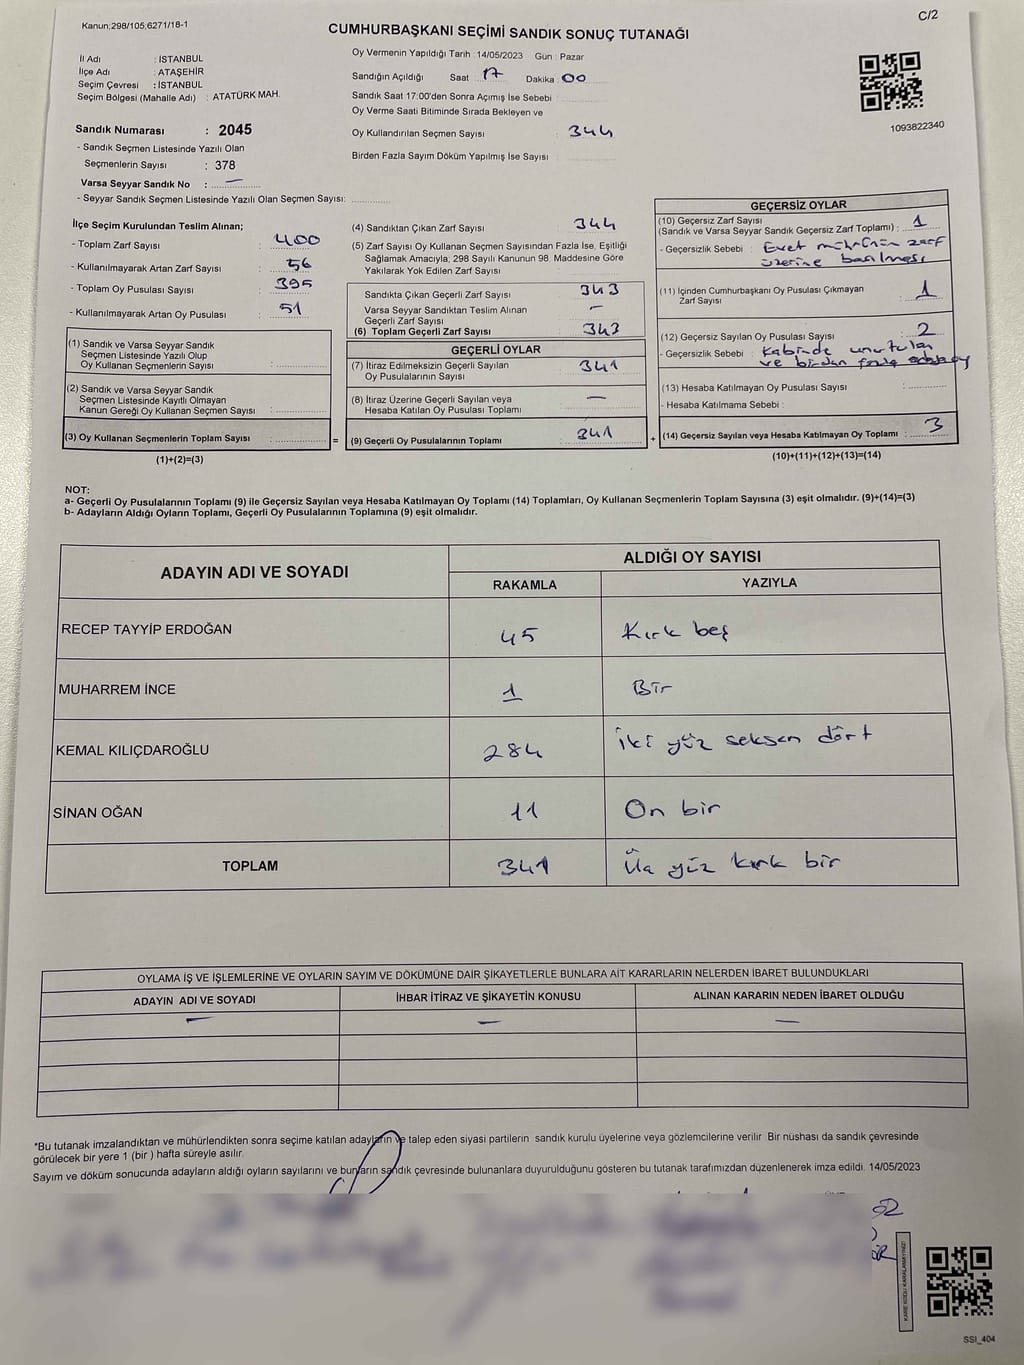 Kanun;298/105,6271/18-1
C/2
CUMHURBAŞKANI SEÇİMİ SANDIK SONUÇ TUTANAĞI
İl Adı : İSTANBUL
İlçe Adı : ATAŞEHİR
Seçim Çevresi : İSTANBUL
Seçim Bölgesi (Mahalle Adı) : ATATÜRK MAH.
Sandık Numarası : 2045
- Sandık Seçmen Listesinde Yazılı Olan
Seçmenlerin Sayısı : 378
Varsa Seyyar Sandık No : —
- Seyyar Sandık Seçmen Listesinde Yazılı Olan Seçmen Sayısı:
Oy Vermenin Yapıldığı Tarih : 14/05/2023 Gün : Pazar
Sandığın Açıldığı Saat 17 Dakika : 00
Sandık Saat 17:00'den Sonra Açımış İse Sebebi :
Oy Verme Saati Bitiminde Sırada Bekleyen ve
Oy Kullandırılan Seçmen Sayısı : 344
Birden Fazla Sayım Döküm Yapılmış İse Sayısı
1093822340
İlçe Seçim Kurulundan Teslim Alınan;
- Toplam Zarf Sayısı : 400
- Kullanılmayarak Artan Zarf Sayısı : 56
- Toplam Oy Pusulası Sayısı : 395
- Kullanılmayarak Artan Oy Pusulası : 51
(1) Sandık ve Varsa Seyyar Sandık
Seçmen Listesinde Yazılı Olup
Oy Kullanan Seçmenlerin Sayısı :
(2) Sandık ve Varsa Seyyar Sandık
Seçmen Listesinde Kayıtlı Olmayan
Kanun Gereği Oy Kullanan Seçmen Sayısı :
(3) Oy Kullanan Seçmenlerin Toplam Sayısı : =
(1)+(2)=(3)
(4) Sandıktan Çıkan Zarf Sayısı : 344
(5) Zarf Sayısı Oy Kullanan Seçmen Sayısından Fazla İse, Eşitliği
Sağlamak Amacıyla, 298 Sayılı Kanunun 98. Maddesine Göre
Yakılarak Yok Edilen Zarf Sayısı :
Sandıkta Çıkan Geçerli Zarf Sayısı : 343
Varsa Seyyar Sandıktan Teslim Alınan
Geçerli Zarf Sayısı : —
(6) Toplam Geçerli Zarf Sayısı : 343
GEÇERLİ OYLAR
(7) İtiraz Edilmeksizin Geçerli Sayılan : 341
Oy Pusulalarının Sayısı
(8) İtiraz Üzerine Geçerli Sayılan veya : —
Hesaba Katılan Oy Pusulası Toplamı
(9) Geçerli Oy Pusulalarının Toplamı : 341 +
GEÇERSİZ OYLAR
(10) Geçersiz Zarf Sayısı
(Sandık ve Varsa Seyyar Sandık Geçersiz Zarf Toplamı) : 1
- Geçersizlik Sebebi : Evet mührünün zarf
üzerine basılması
(11) İçinden Cumhurbaşkanı Oy Pusulası Çıkmayan
Zarf Sayısı : 1
(12) Geçersiz Sayılan Oy Pusulası Sayısı : 2
- Geçersizlik Sebebi : Kabinde unutulan
ve birden fazla
(13) Hesaba Katılmayan Oy Pusulası Sayısı :
- Hesaba Katılmama Sebebi :
(14) Geçersiz Sayılan veya Hesaba Katılmayan Oy Toplamı : 3
(10)+(11)+(12)+(13)=(14)
NOT:
a- Geçerli Oy Pusulalarının Toplamı (9) ile Geçersiz Sayılan veya Hesaba Katılmayan Oy Toplamı (14) Toplamları, Oy Kullanan Seçmenlerin Toplam Sayısına (3) eşit olmalıdır. (9)+(14)=(3)
b- Adayların Aldığı Oyların Toplamı, Geçerli Oy Pusulalarının Toplamına (9) eşit olmalıdır.
ADAYIN ADI VE SOYADI ALDIĞI OY SAYISI
RAKAMLA YAZIYLA
RECEP TAYYİP ERDOĞAN 45 Kırk beş
MUHARREM İNCE 1 Bir
KEMAL KILIÇDAROĞLU 284 İki yüz seksen dört
SİNAN OĞAN 11 On bir
TOPLAM 341 Üç yüz kırk bir
OYLAMA İŞ VE İŞLEMLERİNE VE OYLARIN SAYIM VE DÖKÜMÜNE DAİR ŞİKAYETLERLE BUNLARA AİT KARARLARIN NELERDEN İBARET BULUNDUKLARI
ADAYIN ADI VE SOYADI İHBAR İTİRAZ VE ŞİKAYETİN KONUSU ALINAN KARARIN NEDEN İBARET OLDUĞU
— — —
*Bu tutanak imzalandıktan ve mühürlendikten sonra seçime katılan adayların ve talep eden siyasi partilerin sandık kurulu üyelerine veya gözlemcilerine verilir Bir nüshası da sandık çevresinde
görülecek bir yere 1 (bir ) hafta süreyle asılır.
Sayım ve döküm sonucunda adayların aldığı oyların sayılarını ve bunların sandık çevresinde bulunanlara duyurulduğunu gösteren bu tutanak tarafımızdan düzenlenerek imza edildi. 14/05/2023
KARE KODU KARALAMAYINIZ!
SSI_404